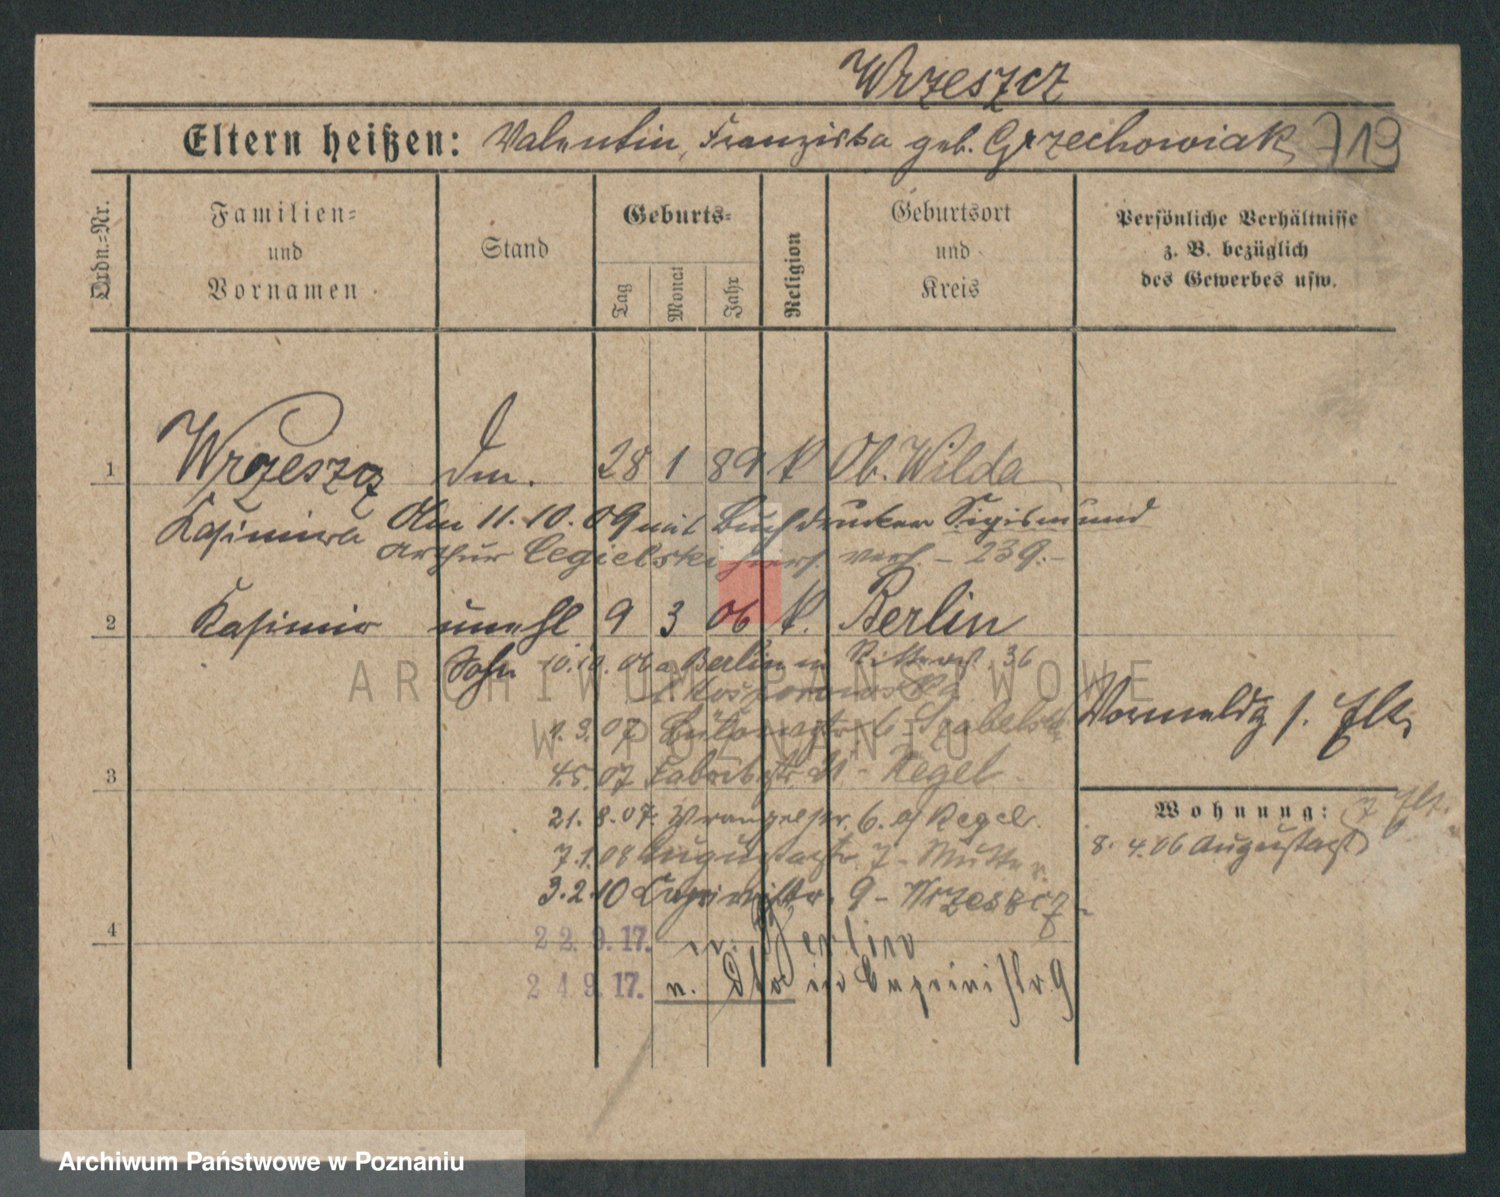 Wrzeszcz
Eltern heißen: Valentin, Franziska geb. Grzechowiak, 719
Ordn.-Nr.
Familien-
und
Vornamen
Stand
Geburts-
Tag
Monat
Jahr
Religion
Geburtsort
und
Kreis
Persönliche Verhältnisse
z. B. bezüglich
des Gewerbes usw.
1 Wrzeszcz 28 1 89 k Ob. Wilda
Kasimira Am 11.10.09 mit Buchdrucker Sigismund
Arthur Cegielski verh. - 239.-
2 Kasimir unehl 9 3 06 k. Berlin
Sohn 10.10.06 a Berlin 36
Vormeldg
07 6
3 4.5.07 Fabrikstr. - Kegel
Wohnung:
21.8.07. Wrangelstr. 6. Kegel.
8.4.06 Augustastr
7.1.08 Augustastr. 7 - Mutter
3.2.10 Caprivistr. 9 - Wrzeszcz
4 22.9.17. n. Berlin
24.9.17. n. Caprivistr. 9
ARCHIWUM PAŃSTWOWE
W POZNANIU
Archiwum Państwowe w Poznaniu